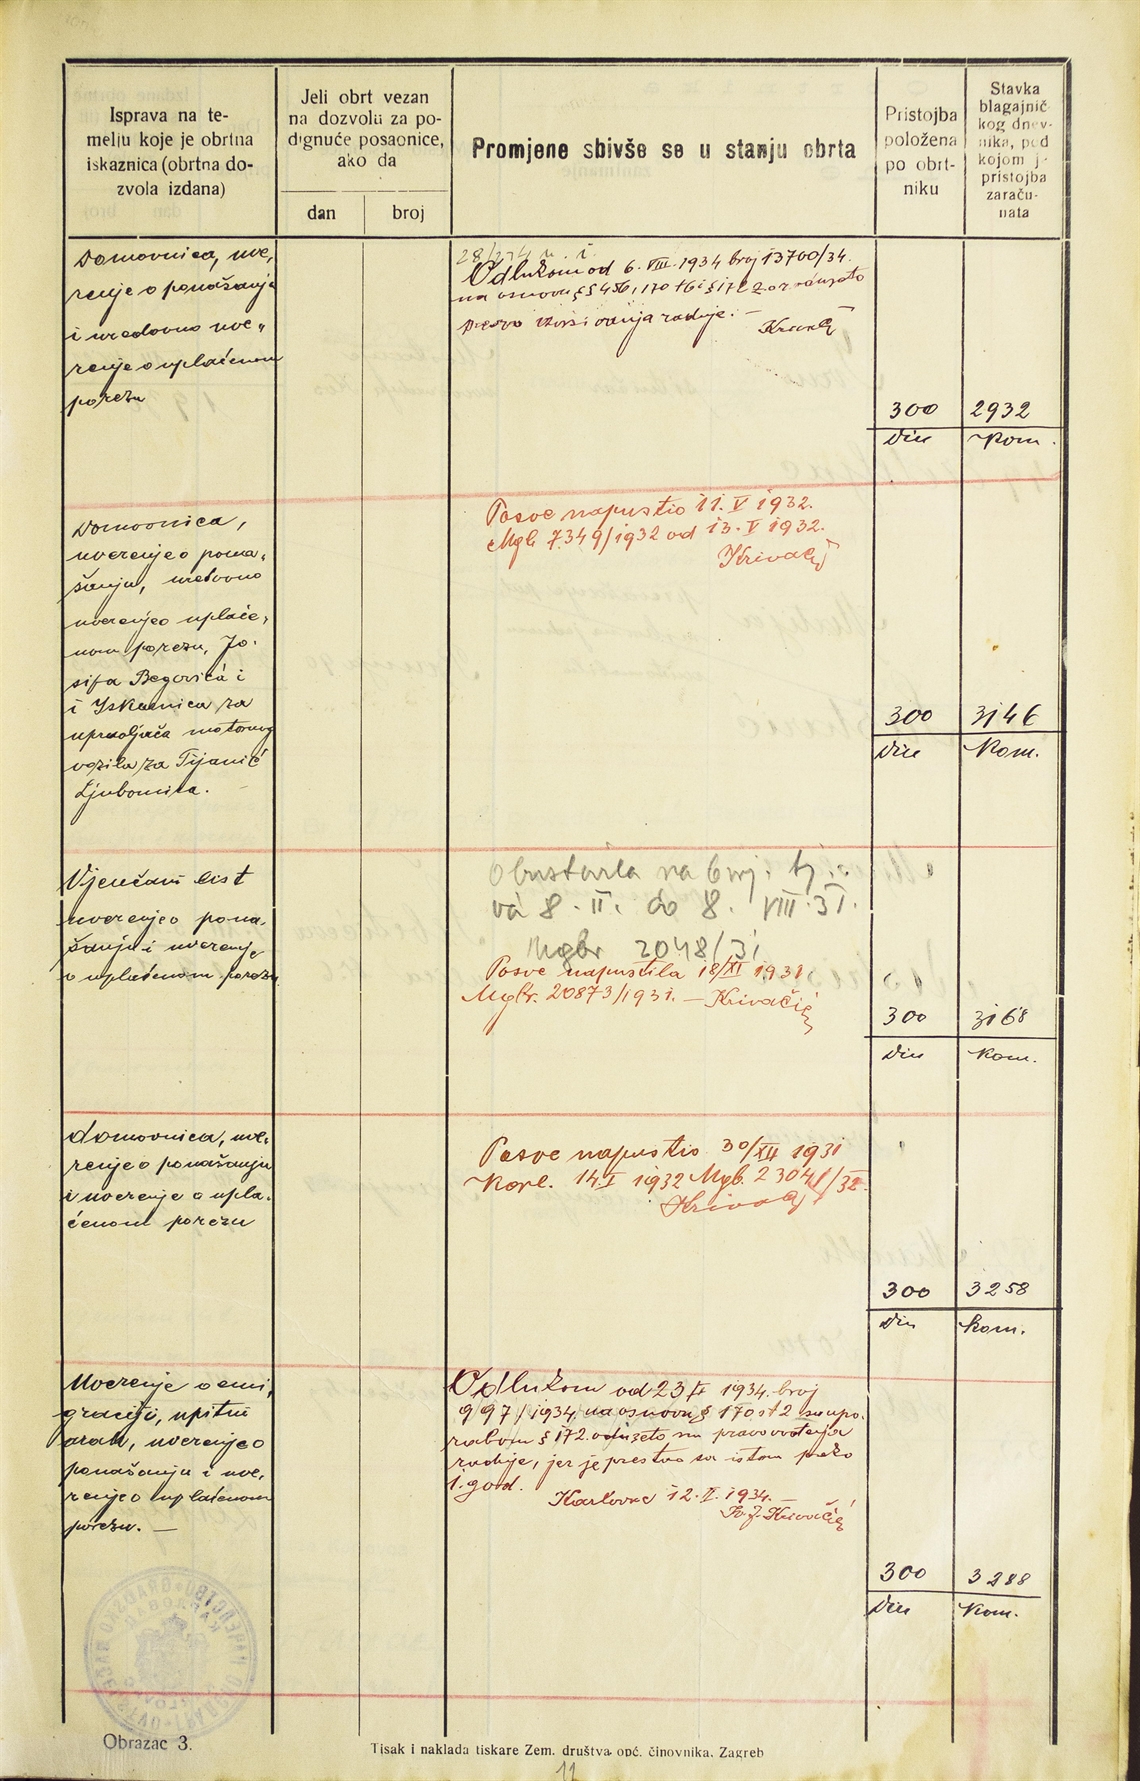 Isprava na te-
melju koje je obrtna
iskaznica (obrtna do-
zvola izdana)
Jeli obrt vezan
na dozvolu za po-
dignuće posaonice,
ako da
dan
broj
Promjene sbivše se u stanju obrta
Pristojba
položena
po obrt-
niku
Stavka
blagajnič-
kog dnev-
nika, pod
kojom je
pristojba
zaraču-
nata
Domovnica, uve-
renje o ponašanju
i uredovno uve-
renje o uplaćenom
porezu
Odlukom od 6. VIII. 1934 broj 13700/34.
na osnovu
pravo radnje. —
300
din
2932
kom.
Domovnica,
uverenje o pona-
šanju, uredovno
uverenje o uplaće-
nom porezu, Jo-
sifa Begovića i
i Iskaznica za
upravljača motornog
vozila za Tijanić
Ljubomira.
Posve napustio 11. V 1932.
Mgb 7349/1932 od 13. V 1932.
Krivačić
300
din
3146
kom.
Vjenčani list
uverenje o pona-
šanju i uverenje
o uplaćenom porezu
Obustavila na
8. II. do 8. VIII. 31.
Mgbr 2048/31
Posve napustila 18/XI 1931
Mgbr. 20873/1931. — Krivačić
300
din
3168
kom.
domovnica, uve-
renje o ponašanju
i uverenje o upla-
ćenom porezu
Posve napustio 30/XII 1931
Karl. 14. I 1932 Mgb.
Krivačić
300
din
3258
kom.
Uverenje o emi-
graciji, upitni
arak, uverenje o
ponašanju i uve-
renje o uplaćenom
porezu. —
Odlukom od 23 1934. broj
997/1934, na osnovu § 170 st 2 sa upo-
rabom § 172. oduzeto mu pravo vođenja
radnje, jer je prestao sa istom preko
1. god.
Karlovac 12. II. 1934.
Krivačić
300
din
3288
kom.
Obrazac 3.
Tisak i naklada tiskare Zem. društva opć. činovnika, Zagreb
11